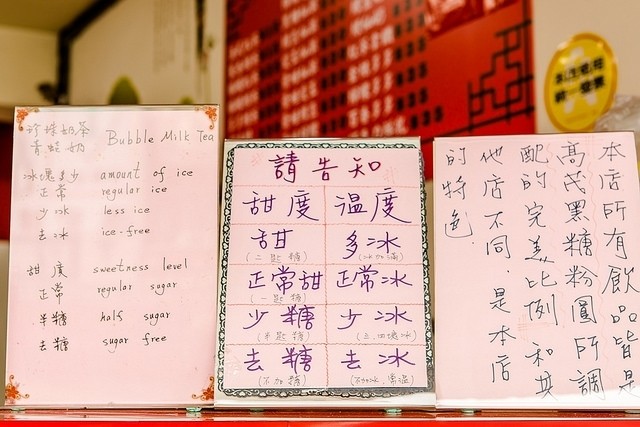 珍珠奶茶
青蛙奶
Bubble Milk Tea
冰塊多少 amount of ice
正常 regular ice
少冰 less ice
去冰 ice-free
甜度 sweetness level
正常 regular sugar
半糖 half sugar
去糖 sugar free
請告知
甜度 溫度
甜 多冰
(二匙糖) (冰加滿)
正常甜 正常冰
(一匙糖)
少糖 少冰
(半匙糖) (三、四塊冰)
去糖 去冰
(不加糖) (不加冰、常溫)
本店所有飲品皆是
高茂黑糖粉圓所調
配的完美比例 和其
他店不同.是本店
的特色.